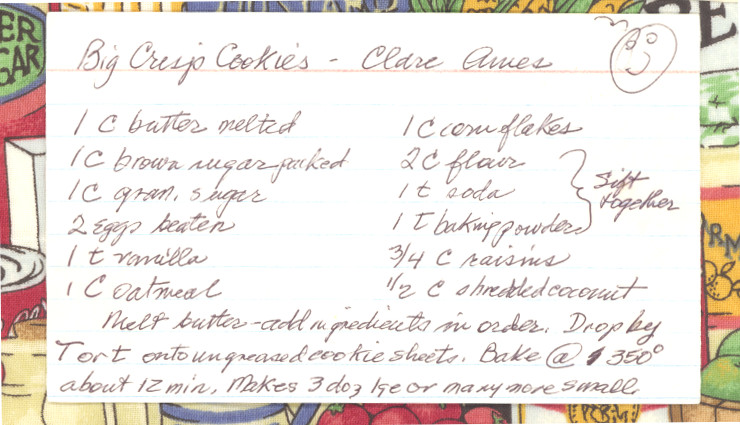 Big Crisp Cookies - Clare Ames
1 C butter melted
1C brown sugar packed
1C gran. sugar
2 eggs beaten
1 t vanilla
1 C oatmeal
1 C corn flakes
2 C flour
1 t soda
1 T baking powder
Sift
together
3/4 C raisins
1/2 C shredded coconut
Melt butter - add ingredients in order. Drop by
T or t onto ungreased cookie sheets. Bake @ 350°
about 12 min. Makes 3 doz lge or many more small.
ER
GAR